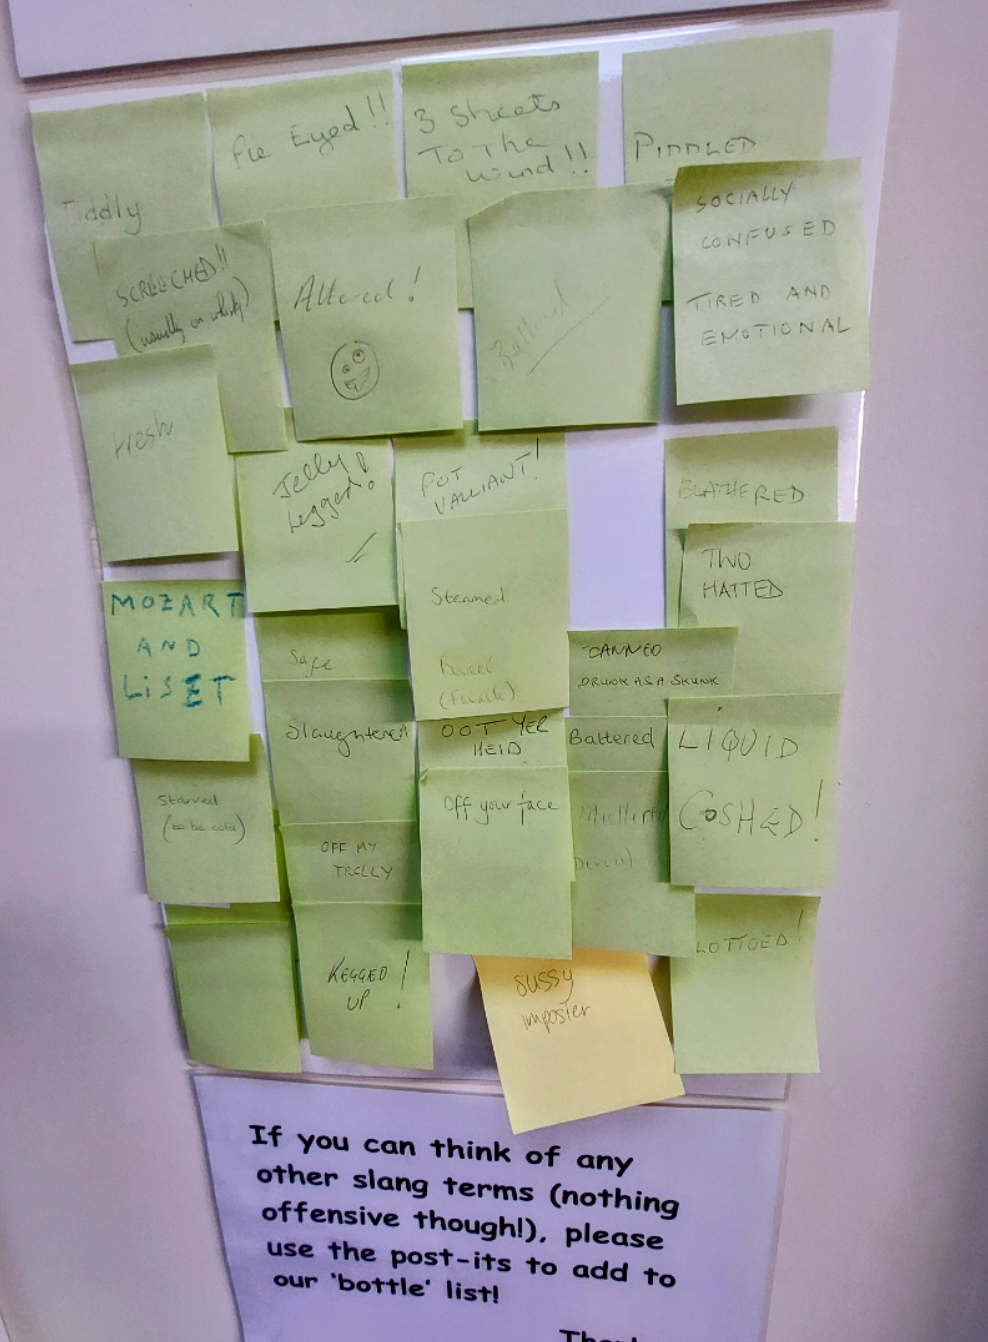 Tiddly
Pie Eyed!!
3 Sheets
To The
wind!!
PIDDLED
SCREECHED!!
(usually on whisky)
Altered!
Battered
SOCIALLY
CONFUSED
TIRED AND
EMOTIONAL
Fresh
Jelly
Legged!
POT
VALLIANT!
BLATHERED
TWO
HATTED
Steamed
(female)
MOZART
AND
LiSZET
Safe
CANNED
DRUNK AS A SKUNK
Slaughtered
OOT YER
HEID
Battered
LIQUID
COSHED!
Starved
(to be cold)
OFF MY
TROLLY
Off your face
KEGGED
UP!
LOTTOED!
sussy
imposter
If you can think of any
other slang terms (nothing
offensive though!), please
use the post-its to add to
our 'bottle' list!